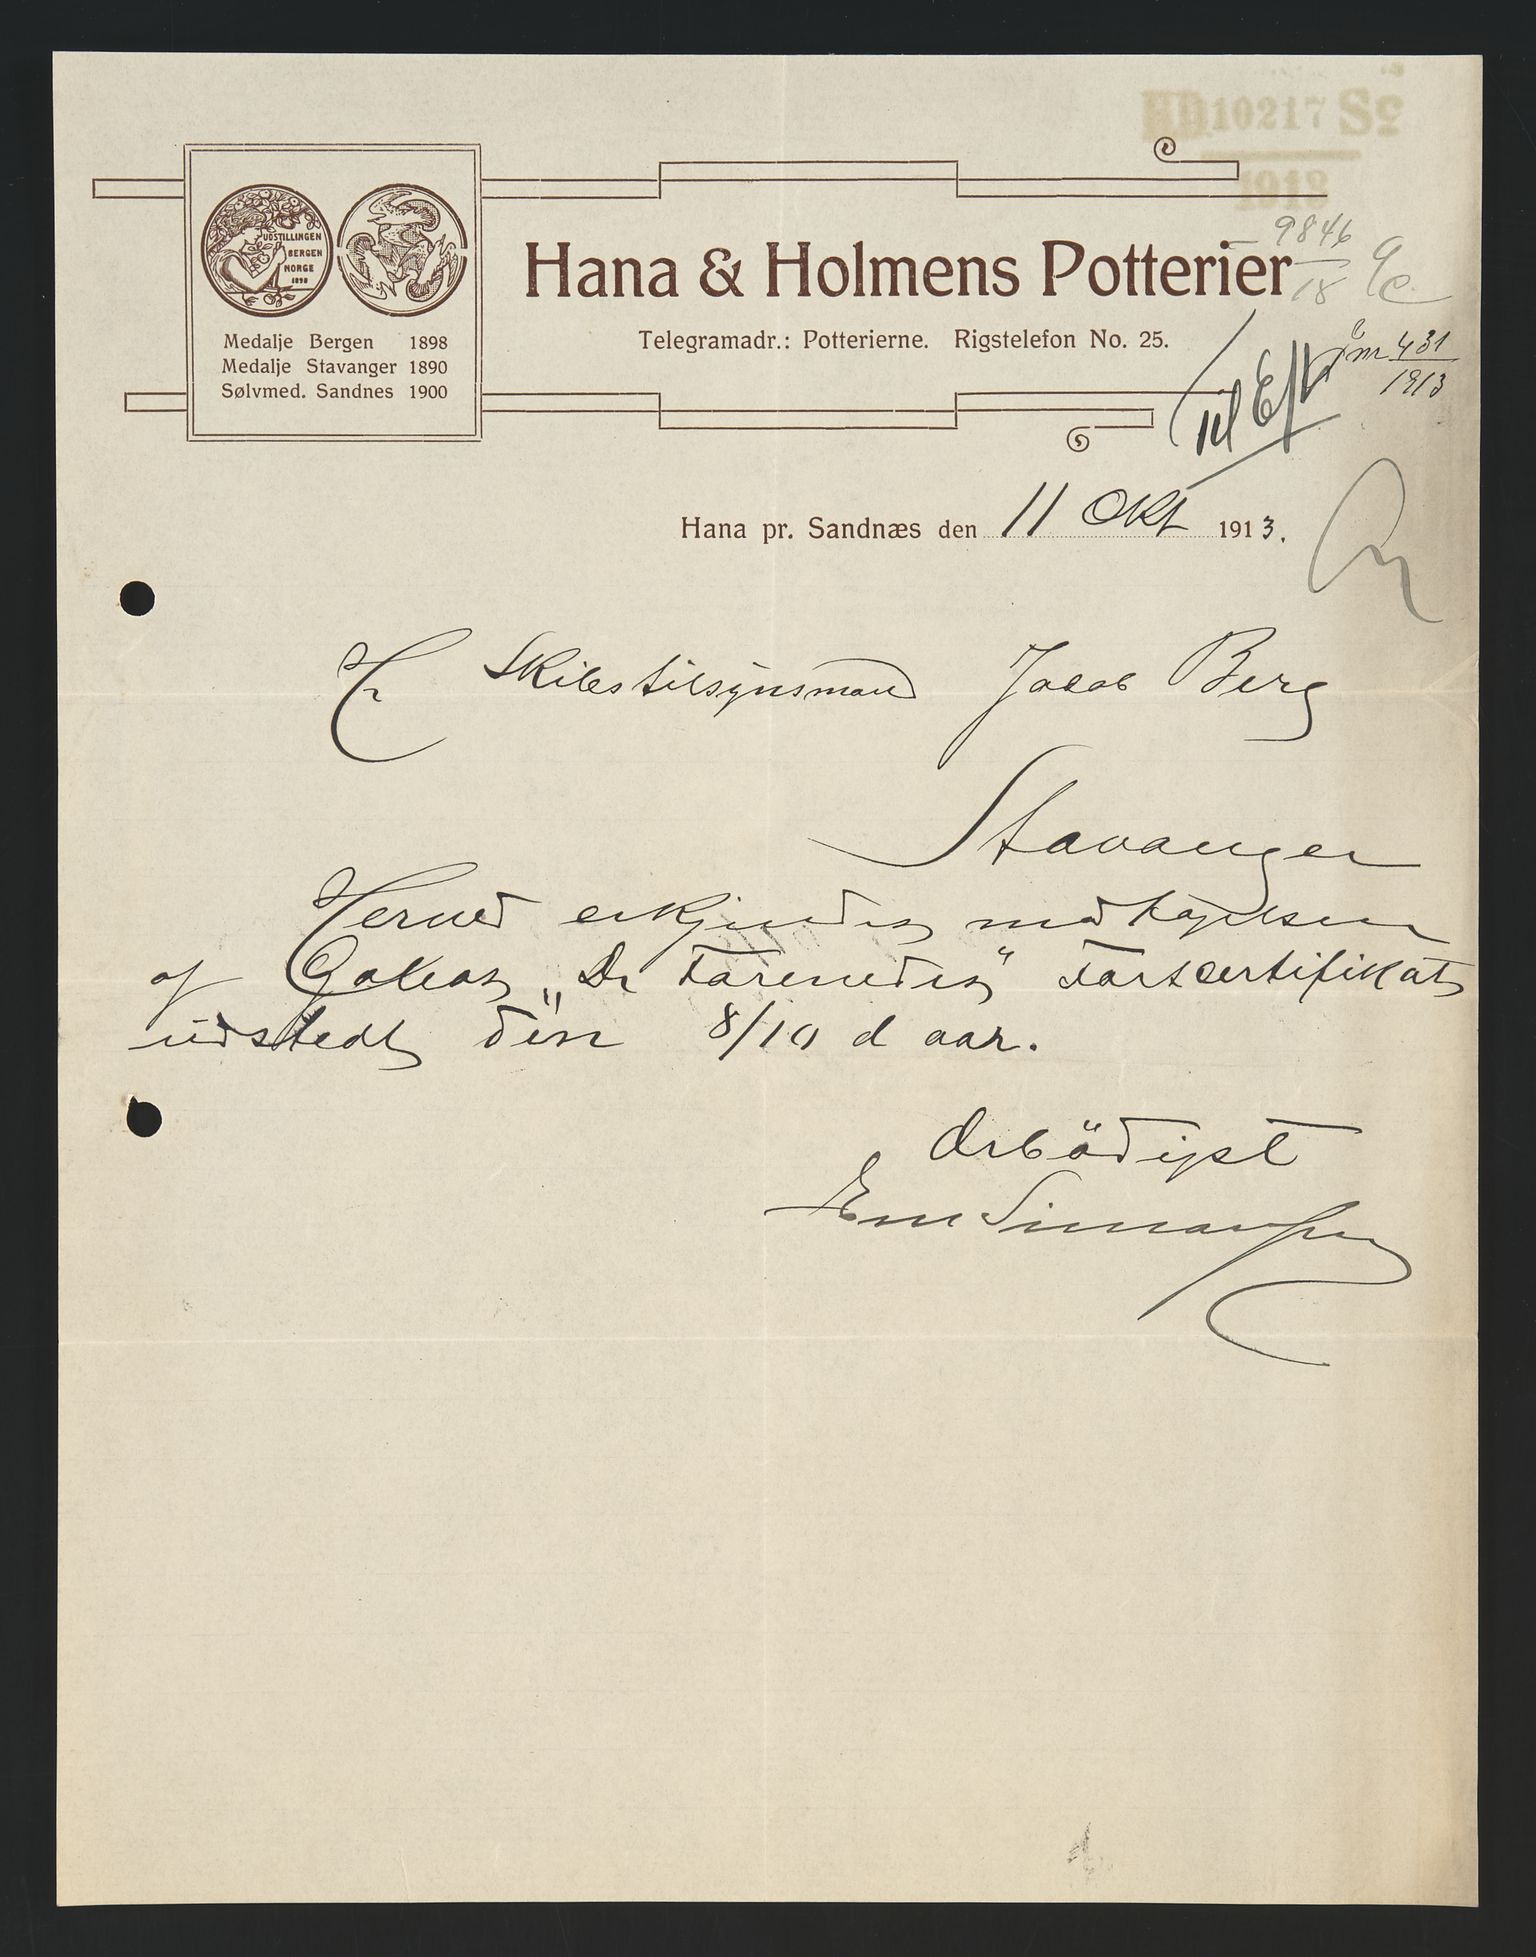 HD 10217 Sc
1918
UDSTILLINGEN
BERGEN
NORGE
1898
Medalje Bergen 1898
Medalje Stavanger 1890
Sølvmed. Sandnes 1900
Hana & Holmens Potterier
9846
18
Telegramadr.: Potterierne. Rigstelefon No. 25.
Til
431
1913
Hana pr. Sandnæs den 11 Okt 1913.
Hr Skibstilsynsmand Jacob Berg
Stavanger
Herved erkjendes modtagelsen
af Galeas „De Forenedes" Fartscertifikat
udstedt den 8/10 d aar.
Ærbödigst